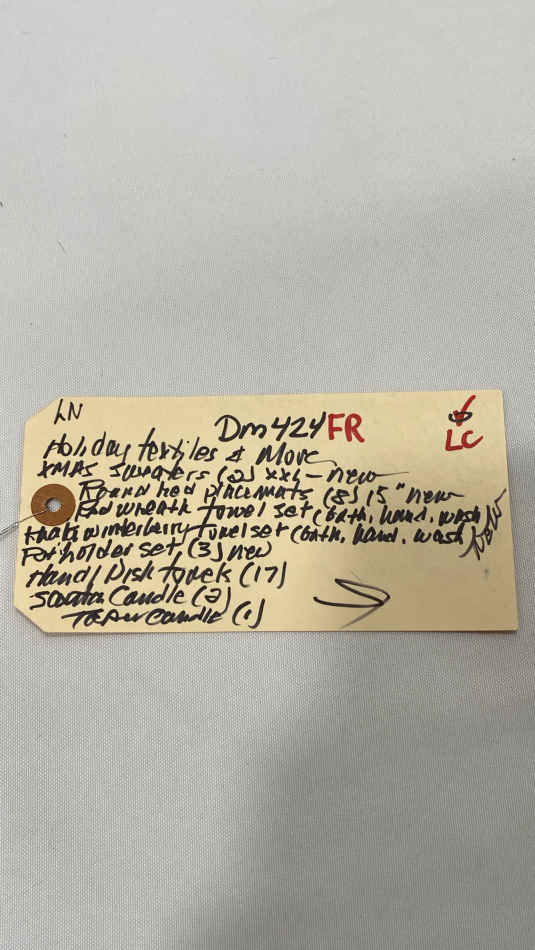 LN
Dm424 FR
LC
Holiday textiles & More
XMAS Sweaters (2) XXL - new
Round Red placemats (8) 15" new
Red wreath towel set (bath, hand, wash
winterberry towel set (bath, hand, wash
new
Potholder set (3) new
Hand/Dish towels (17)
Candle (2)
Taper candle (1)